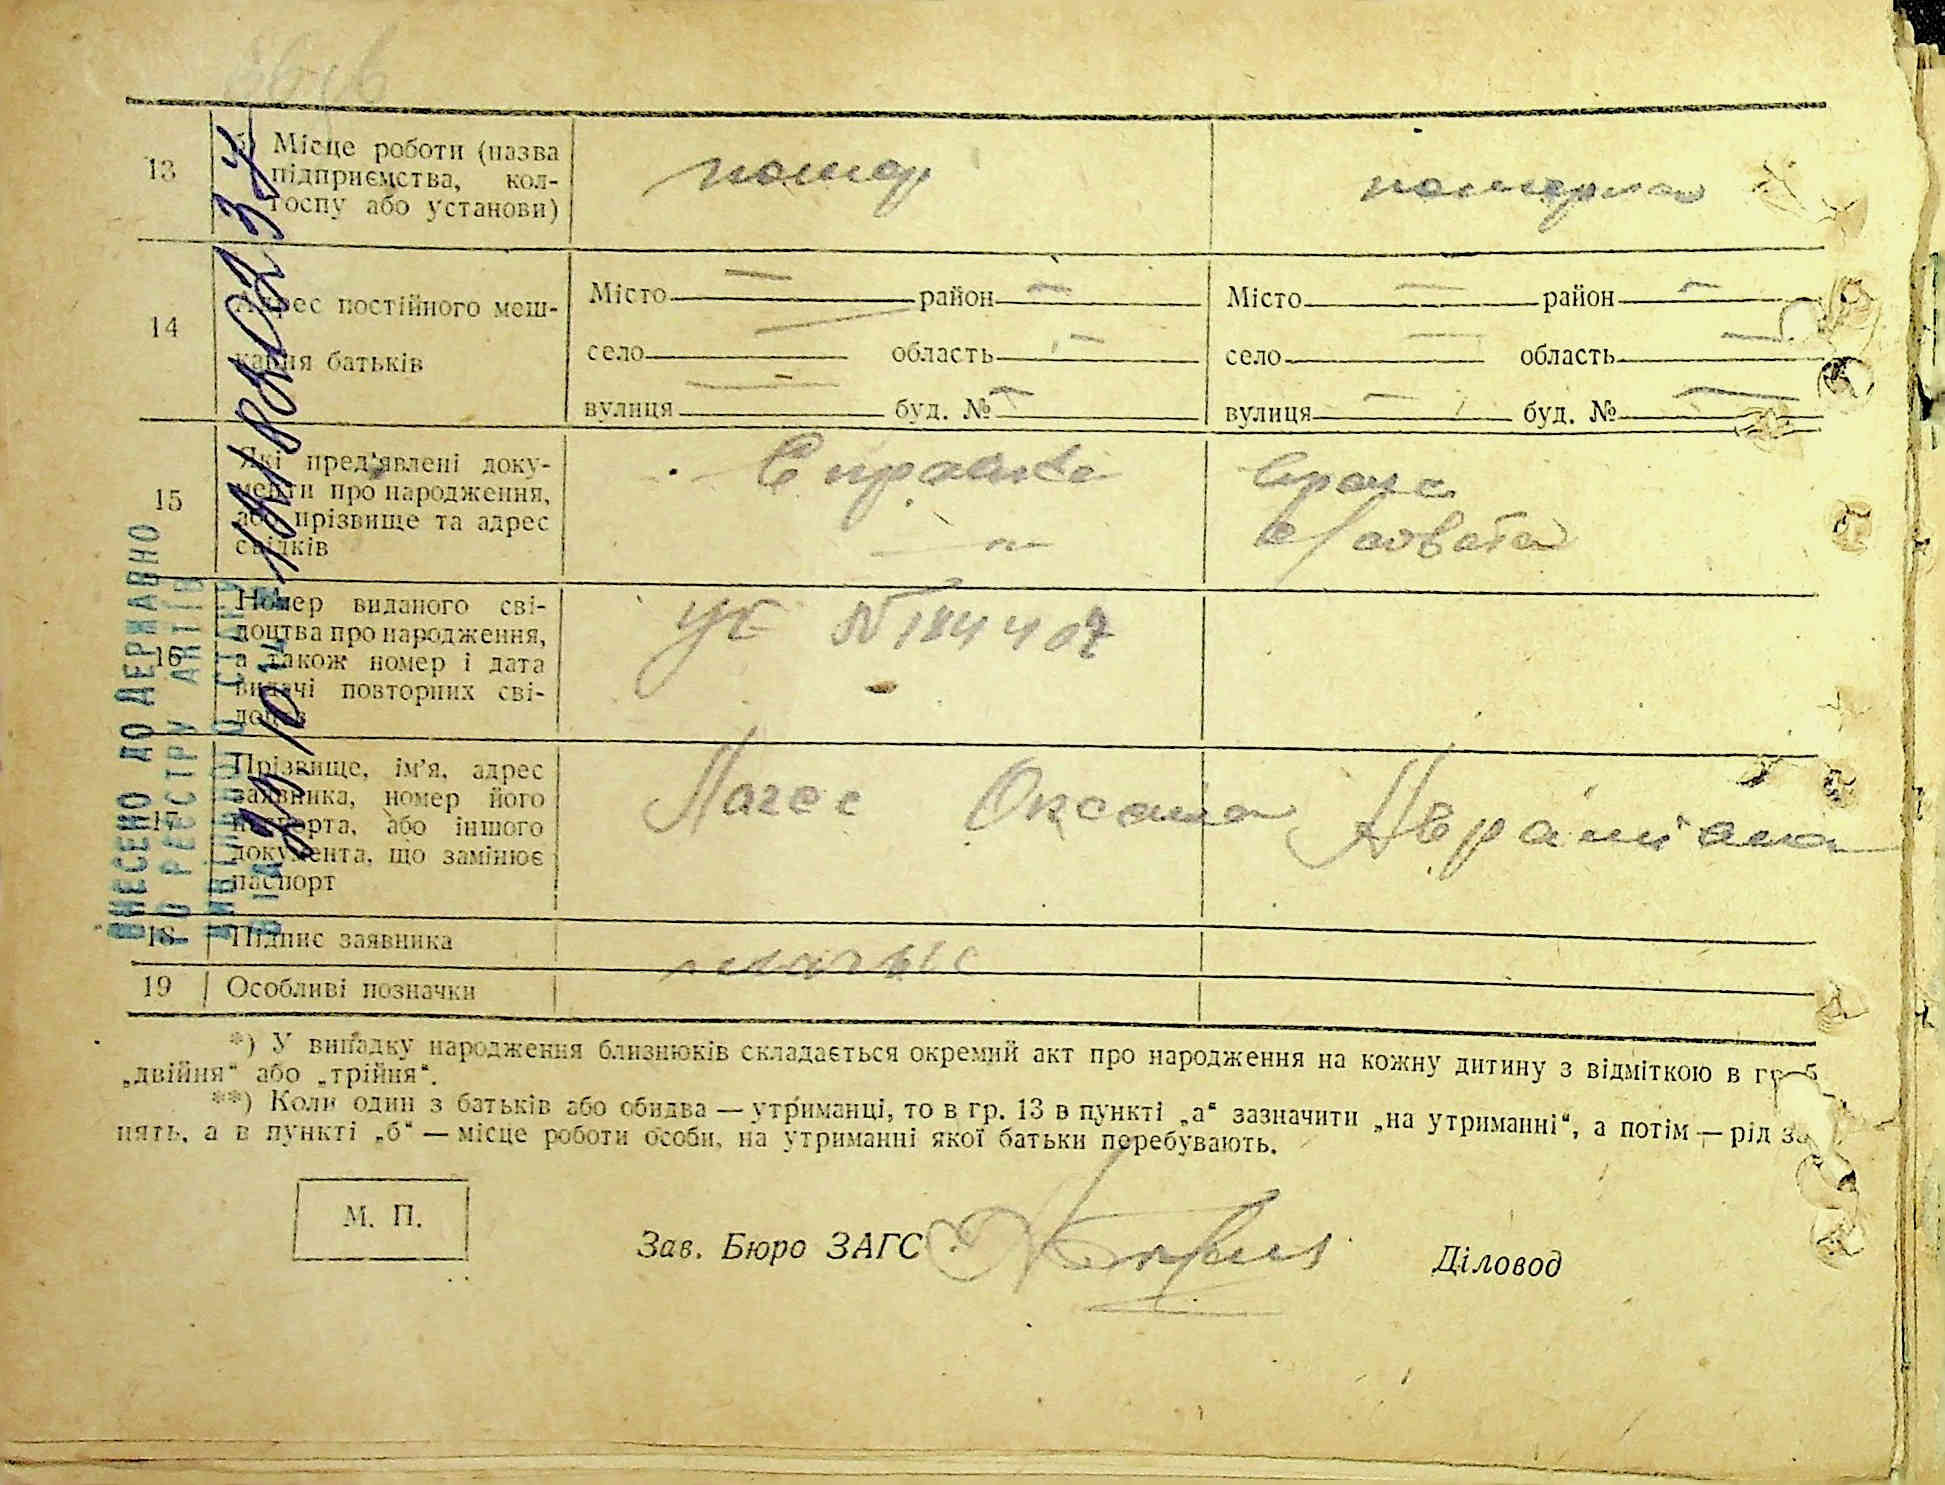 13
б) Місце роботи (назва
підприємства, кол-
госпу або установи)
помер
померла
14
Адрес постійного меш-
кання батьків
Місто — район —
село — область —
вулиця — буд. № —
Місто — район —
село — область —
вулиця — буд. № —
15
Які пред'явлені доку-
менти про народження,
або прізвище та адрес
свідків
Справка
врача
16
Номер виданого сві-
доцтва про народження,
а також номер і дата
видачі повторних сві-
доцтв
УЕ № 184407
17
Прізвище, ім'я, адрес
заявника, номер його
паспорта, або іншого
документа, що замінює
паспорт
Оксана
18
Підпис заявника
19
Особливі позначки
ВНЕСЕНО ДО ДЕРЖАВНО
ГО РЕЄСТРУ АКТІВ
ЦИВІЛЬНОГО СТАНУ
*) У випадку народження близнюків складається окремий акт про народження на кожну дитину з відміткою в гр. 5
„двійня“ або „трійня“.
**) Коли один з батьків або обидва — утриманці, то в гр. 13 в пункті „а“ зазначити „на утриманні“, а потім — рід за-
нять, а в пункті „б“ — місце роботи особи, на утриманні якої батьки перебувають.
М. П.
Зав. Бюро ЗАГС
Діловод